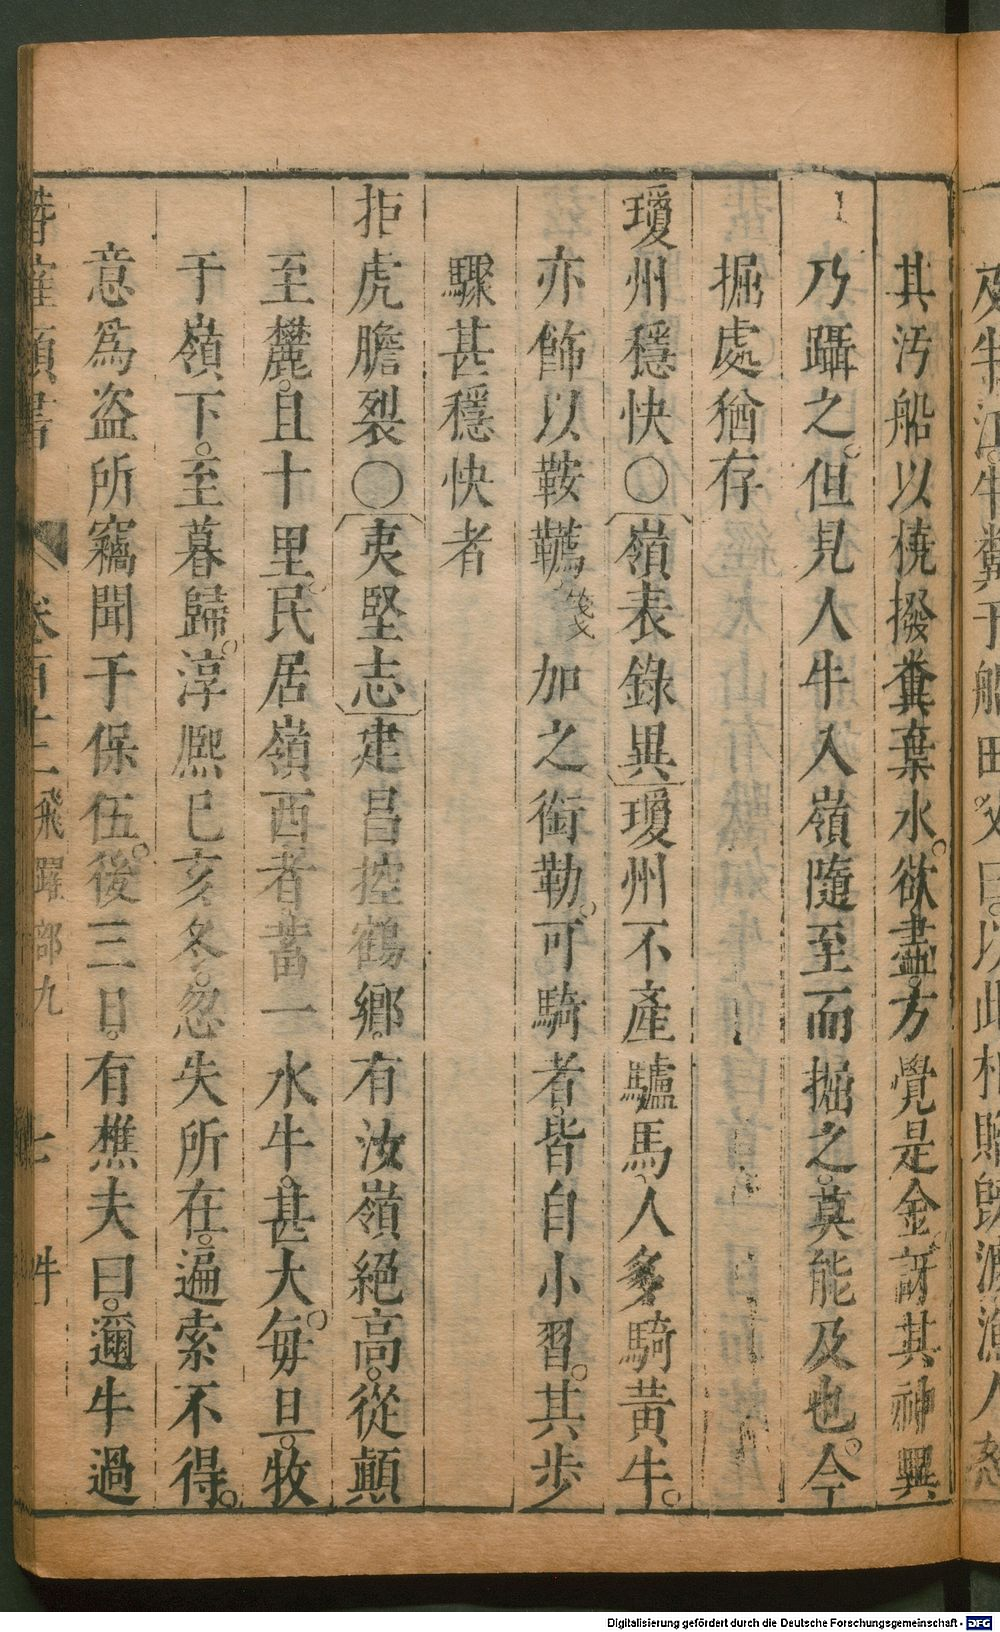 其汚船以橈撥糞棄水欲盡方覺是金訝其神異
乃躡之但見人牛入嶺隨至而掘之莫能及也今
掘處猶存
瓊州穩快〇嶺表錄異瓊州不產驢馬人多騎黄牛
亦飾以鞍韉箋加之銜勒可騎者皆自小習其步
驟甚穩快者
拒虎膽裂〇夷堅志建昌控鶴鄉有汝嶺絕高從顛
至麓且十里民居嶺西者蓄一水牛甚大每旦牧
于嶺下至暮歸淳熈巳亥冬忽失所在遍索不得
意爲盜所竊聞于保伍後三日有樵夫曰邇牛過
飛躍部九
七
Digitalisierung gefördert durch die Deutsche Forschungsgemeinschaft - DFG